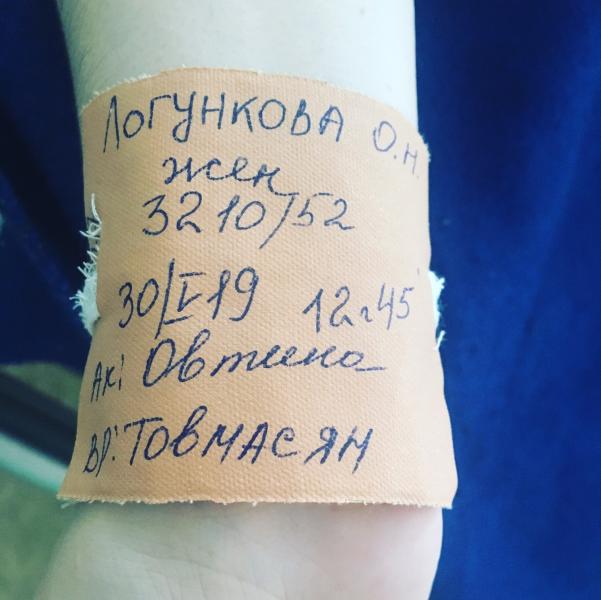 Логункова О.Н.
жен
3210/52
30/V19 12ч45'
Ак: Овтина
вр: Товмасян